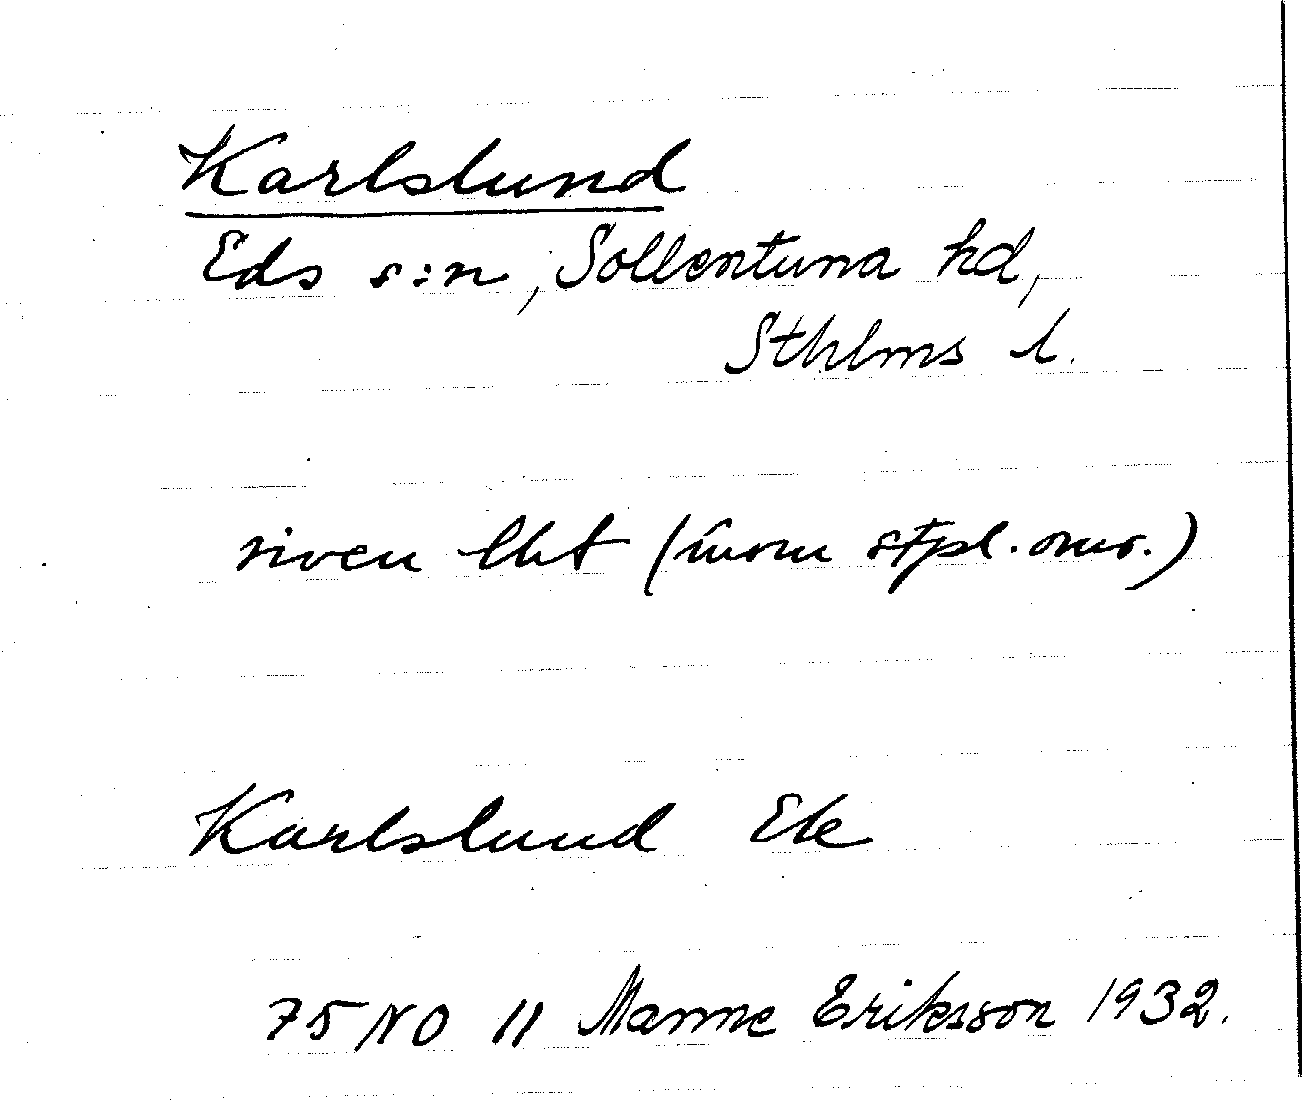 Karlslund
Eds s:n, Sollentuna hd,
Sthlms l.
riven lht (inom stpl. omr.)
Karlslund Ek
75 NO 11 Manne Eriksson 1932.